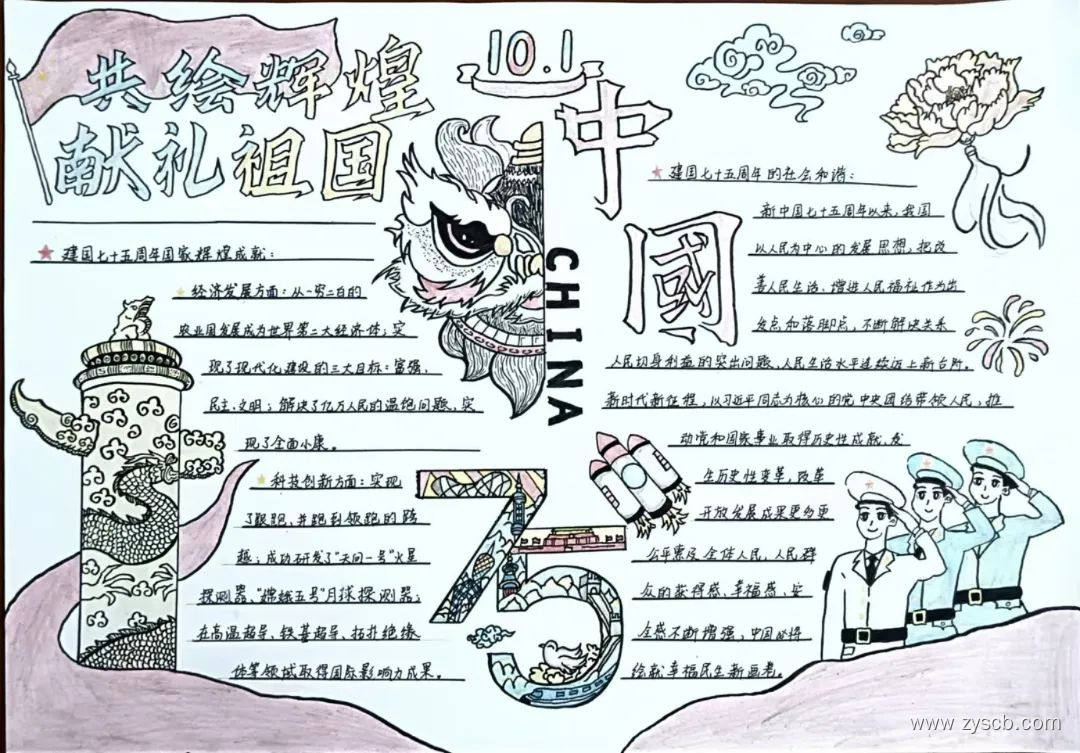 共绘辉煌
献礼祖国
10.1
中
國
CHINA
建国七十五周年国家辉煌成就:
经济发展方面:从一穷二白的
农业国发展成为世界第二大经济体;实
现了现代化建设的三大目标:富强、
民主、文明;解决了亿万人民的温饱问题,实
现了全面小康。
科技创新方面:实现
了跟跑、并跑到领跑的跨
越;成功研发了“天问一号”火星
探测器、“嫦娥五号”月球探测器;
在高温超导、铁基超导、拓扑绝缘
体等领域取得国际影响力成果。
75
建国七十五周年的社会和谐:
新中国七十五周年以来,我国
以人民为中心的发展思想,把改
善人民生活、增进人民福祉作为出
发点和落脚点,不断解决关系
人民切身利益的突出问题,人民生活水平连续迈上新台阶。
新时代新征程,以习近平同志为核心的党中央团结带领人民,推
动党和国家事业取得历史性成就、发
生历史性变革,改革
开放发展成果更多更
公平惠及全体人民,人民群
众的获得感、幸福感、安
全感不断增强,中国必将
绘就幸福民生新画卷。
www.zyscb.com